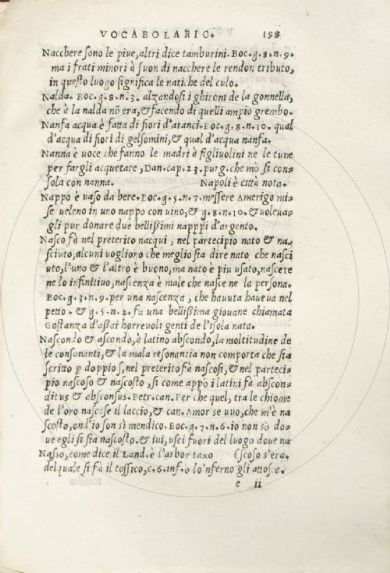 VOCABOLARIO. 198
Nacchere sono le piue, altri dice tamburini. Boc. g. 8. n. 9.
ma i frati minori è suon di nacchere le rendon tributo,
in questo luogo significa le natiche del culo.
Nalda. Boc. g. 8. n. 3. alzandosi i ghironi de la gonnella,
che è la nalda nō era, & facendo di quelli ampio grembo.
Nanfa acqua è fatta di fiori d'aranci. Boc. g. 8. n. 10. qual
d'acqua di fiori di gelsomini, & qual d'acqua nanfa.
Nanna è uoce che fanno le madri è figliuolini ne le cune
per fargli acquetare, Dan. cap. 23. purg. che mò si con-
sola con nanna. Napoli è città nota.
Nappo è uaso da bere. Boc. g. 5. n. 7. messere Amerigo mi-
se ueleno in uno nappo con uino, & g. 8. n. 10. & uoleua-
gli pur donare due bellissimi napppi d'argento.
Nasco fè nel preterito nacqui, nel participio nato & na-
sciuto, alcuni uogliono che meglio sia dire nato che nasci
uto, l'uno & l'altro è buono, ma nato è piu usato, nascere
ne lo infinitiuo, nascenza è male che nasce ne la persona.
Boc. g. 3. n. 9. per una nascenza, che hauuta haueua nel
petto. & g. 5. n. 2. fu una bellissima giouane chiamata
Gostanza d'assai horreuoli genti de l'isola nata.
Nascondo & ascondo, è latino abscondo, la moltitudine de
le consonanti, & la mala resonantia non comporta che sia
scritto p doppio s, nel preterito fà nascosi, & nel partici-
pio nascoso & nascosto, si come appo i latini fà abscon-
ditus & absconsus. Petr. can. Per che quel, tra le chiome
de l'oro nascose il laccio, & can. Amor se uuo, che m'è na
scosto, on l'io son sì mendico. Boc. g. 7. n. 6. io non sò do-
ue egli si sia nascosto. & iui, usci fuori del luogo doue na
Nasso, come dice il Land. è l'arbor taxo (scoso s'era.
del quale si fà il tossico, c. 6. inf. o lo'nferno gli attosca.
e ii